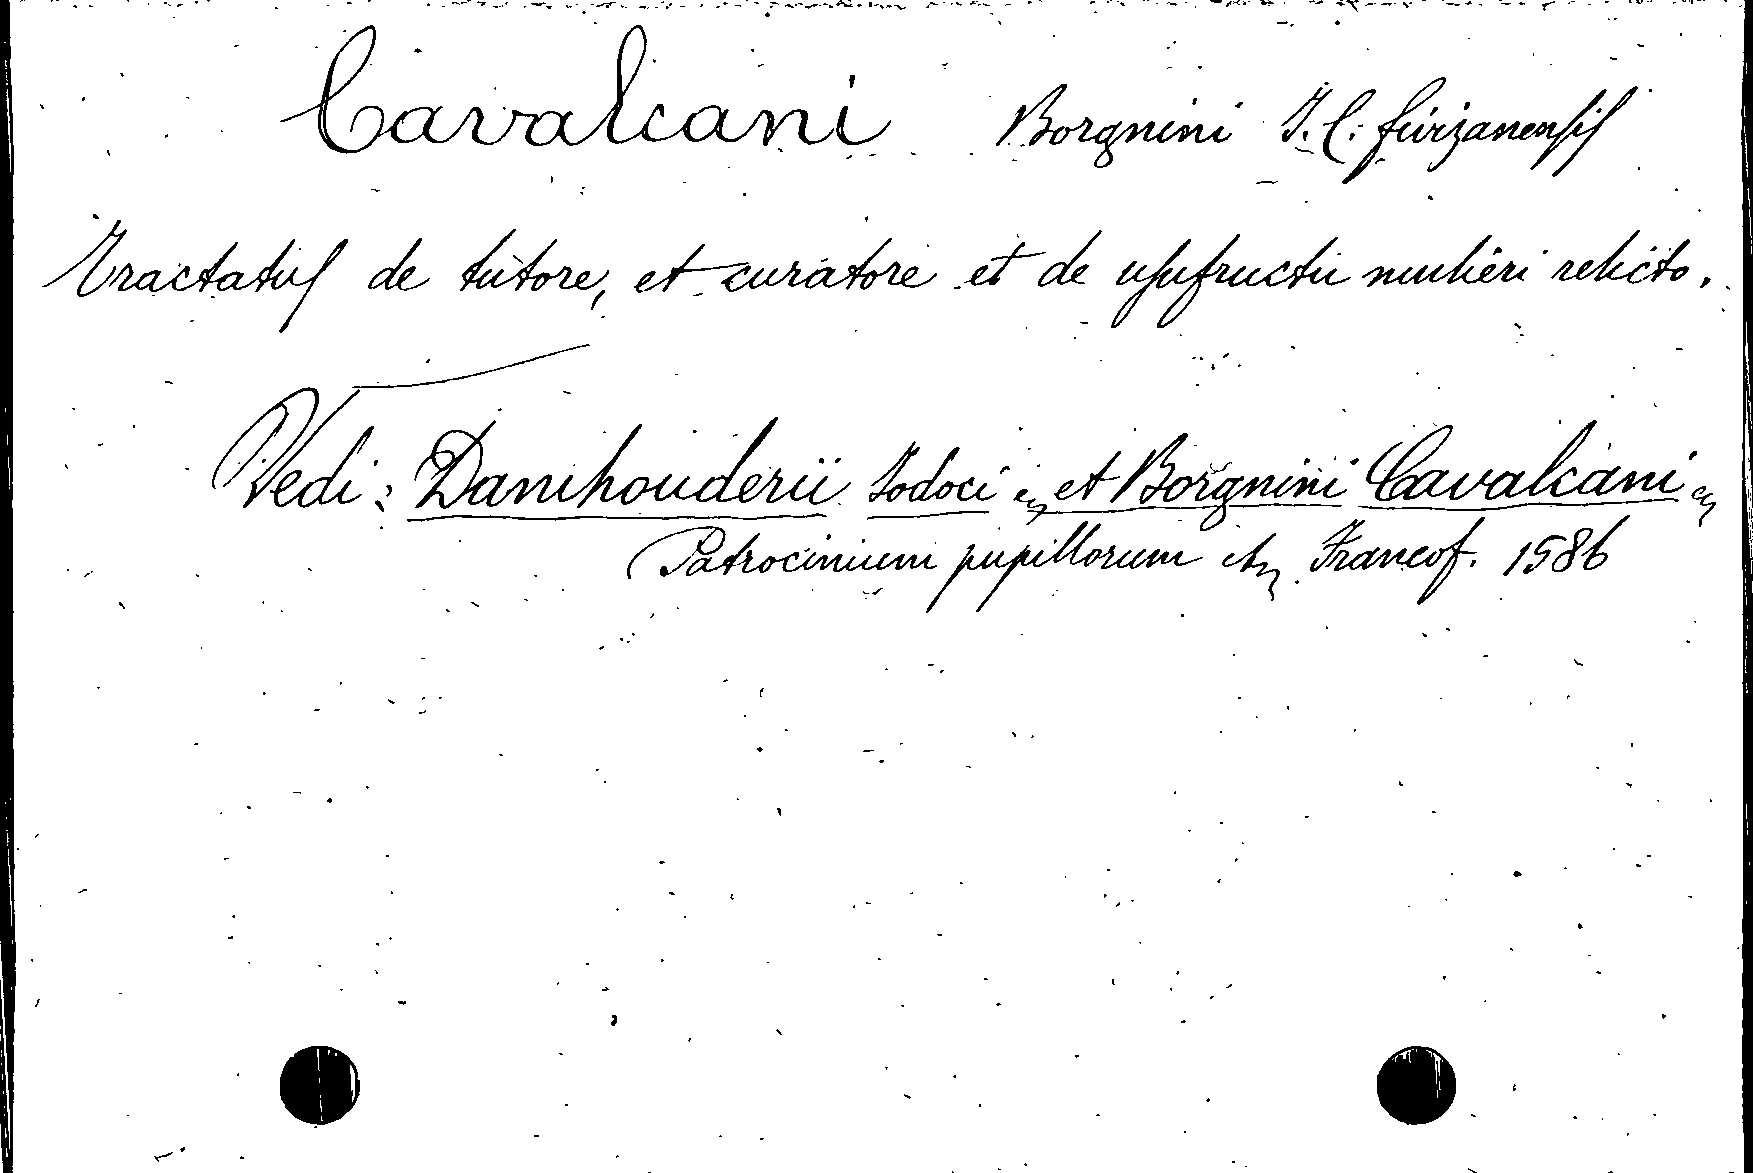 Cavalcani Borgnini J. C. fivizanensis
Tractatus de tutore, et curatore et de usufructu mulieri relicto.
Vedi: Damhouderii Jodoci et Borgnini Cavalcani
Patrocinium pupillorum Francof. 1586